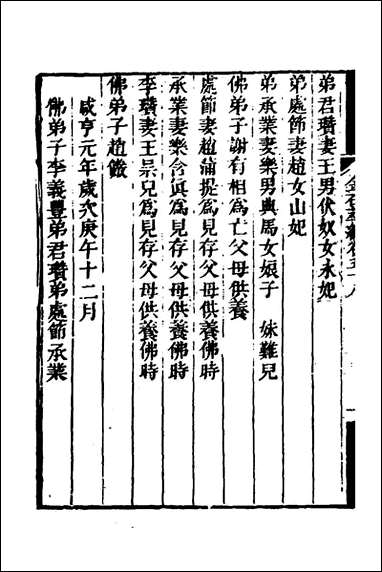 金石萃編卷五十八
弟君瓚妻王男伏奴女永妃
弟處節妻趙女山妃
弟承業妻樂男興馬女娘子　妹難兒
佛弟子謝有相爲亡父母供養
處節妻趙蒲提爲見存父母供養佛時
承業妻樂含眞爲見存父母供養佛時
李瓚妻王杲兒爲見存父母供養佛時
佛弟子趙儼
咸亨元年歲次庚午十二月
佛弟子李義豐弟君瓚弟處節承業